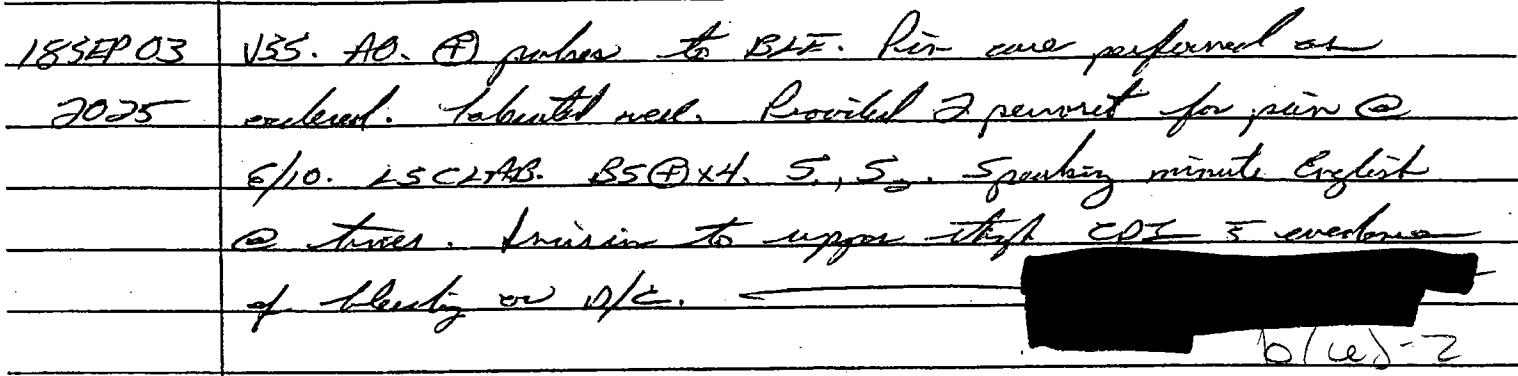 18SEP03 VSS. AO. ⊕ pulses to BLE. Pin care performed as
2025 ordered. Tolerated well. Provided 2 percocet for pain @
6/10. LSCTAB. BS⊕x4. S1, S2. Speaking minute English
@ times. Incision to upper thigh CDI s̄ evidence
of bleeding or D/C.
b(6)-2